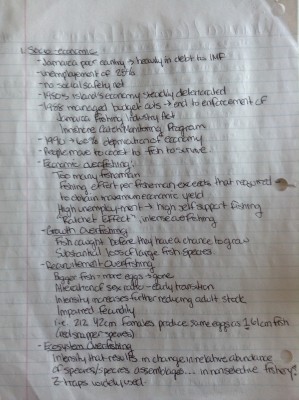 1. Socio-economic
- Jamaica poor country & heavily in debt to IMF
- unemployment of 28%
- no social safety net
- 1980s island's economy steadily deteriorated
- 1988 managed budget cuts → end to enforcement of
Jamaica Fishing Industry Act
Inshore Catch Monitoring Program
- 1990 → 60% depreciation of economy
- People move to coast to fish to survive
- Economic overfishing:
Too many fisherman
Fishing effort per fisherman exceeds that required
to obtain maximum economic yield
High unemployment → high self support fishing
"Ratchet Effect" intense overfishing
- Growth Overfishing
Fish caught before they have a chance to grow
Substantial loss of large fish species
- Recruitment Overfishing
Bigger fish - more eggs = gone
Alteration of sex ratio - early transition
Intensity increases further reducing adult stock
Impaired fecundity
i.e. 212 42cm females produce same eggs as 1 61cm fish
(red snapper species)
- Ecosystem Overfishing
Intensity that results in change in relative abundance
of species/species assemblages... in nonselective fishery
Z-traps widely used